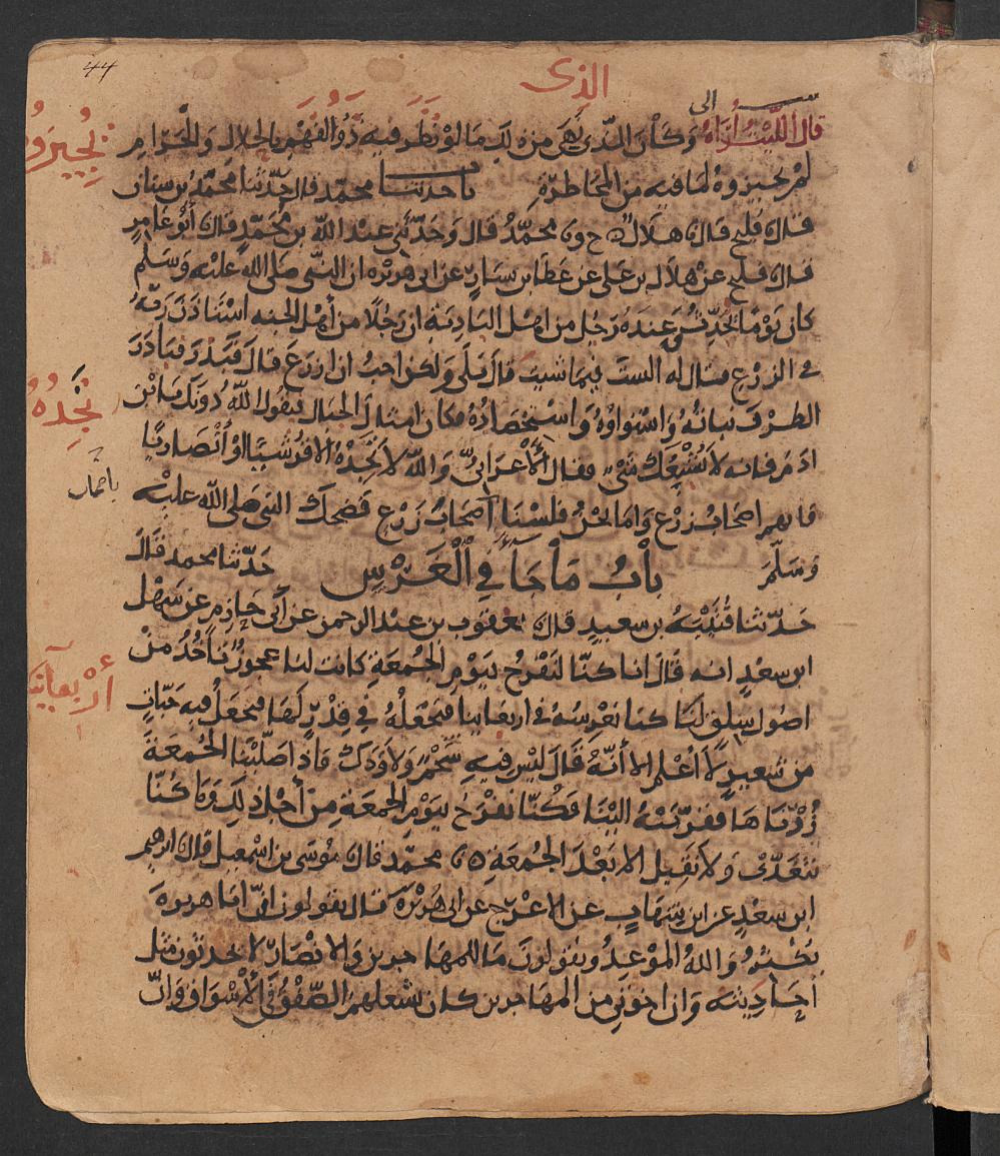 44
الذى
الى
قال الليث اراه وكان الذى نهى من ذلك ما لو نظر فيه ذوو الفهم بالحلال والحرام
يجيزوه
لم يجيزوه لما فيه من المخاطرة باب حدثنا محمد قال حدثنا محمد بن سنان
قال فليح قال هلال ح ون محمد قال وحدثنى عبد الله بن محمد قال أبو عامر
قال فليح عن هلال بن على عن عطا بن يسار عن ابى هريرة ان النبى صلى الله عليه وسلم
كان يوما يحدث وعنده رجل من اهل البادية ان رجلا من أهل الجنه استأذن ربه
فى الزرع فقال له الست فيما شيت قال بلى ولكن احب ان ازرع قال فبذر فبادر
الطرف نباته واستواوه واستحصاده فكان امثال الجبال فيقول الله دونك يا ابن
تجده
ادم فانه لا يشبعك شى فقال الأعرابى والله لا تجده الا قرشيا او أنصاريا
فانهم اصحاب زرع واما نحن فلسنا أصحاب زرع فضحك النبى صلى الله عليه
وسلم باب ما جا في الغرس حدثنا محمد قال
حدثنا قتيبة بن سعيد قال يعقوب بن عبد الرحمن عن أبى حازم عن سهل
ابن سعد انه قال انا كنا لنفرح بيوم الجمعة كانت لنا عجوز تأخذ من
أربعاينا
اصول سلق لنا كنا نغرسه فى اربعاينا فتجعله في قدر لها فتجعل فيه حبات
من شعير لا أعلم الا أنه قال ليس فيه شحم ولا ودك فاذا صلينا الجمعة
زرناها فقربته الينا فكنا نفرح بيوم الجمعة من أجل ذلك وما كنا
نتغدى ولا نقيل الا بعد الجمعة ن محمد قال موسى بن اسمعيل قال ابرهيم
ابن سعد عن ابن شهاب عن الاعرج عن ابى هريرة قال يقولون ان أبا هريرة
يكثر والله الموعد ويقولون ما للمهاجرين والانصار لا يحدثون مثل
أحاديثه وان اخوتى من المهاجرين كان يشغلهم الصفق في الأسواق وان